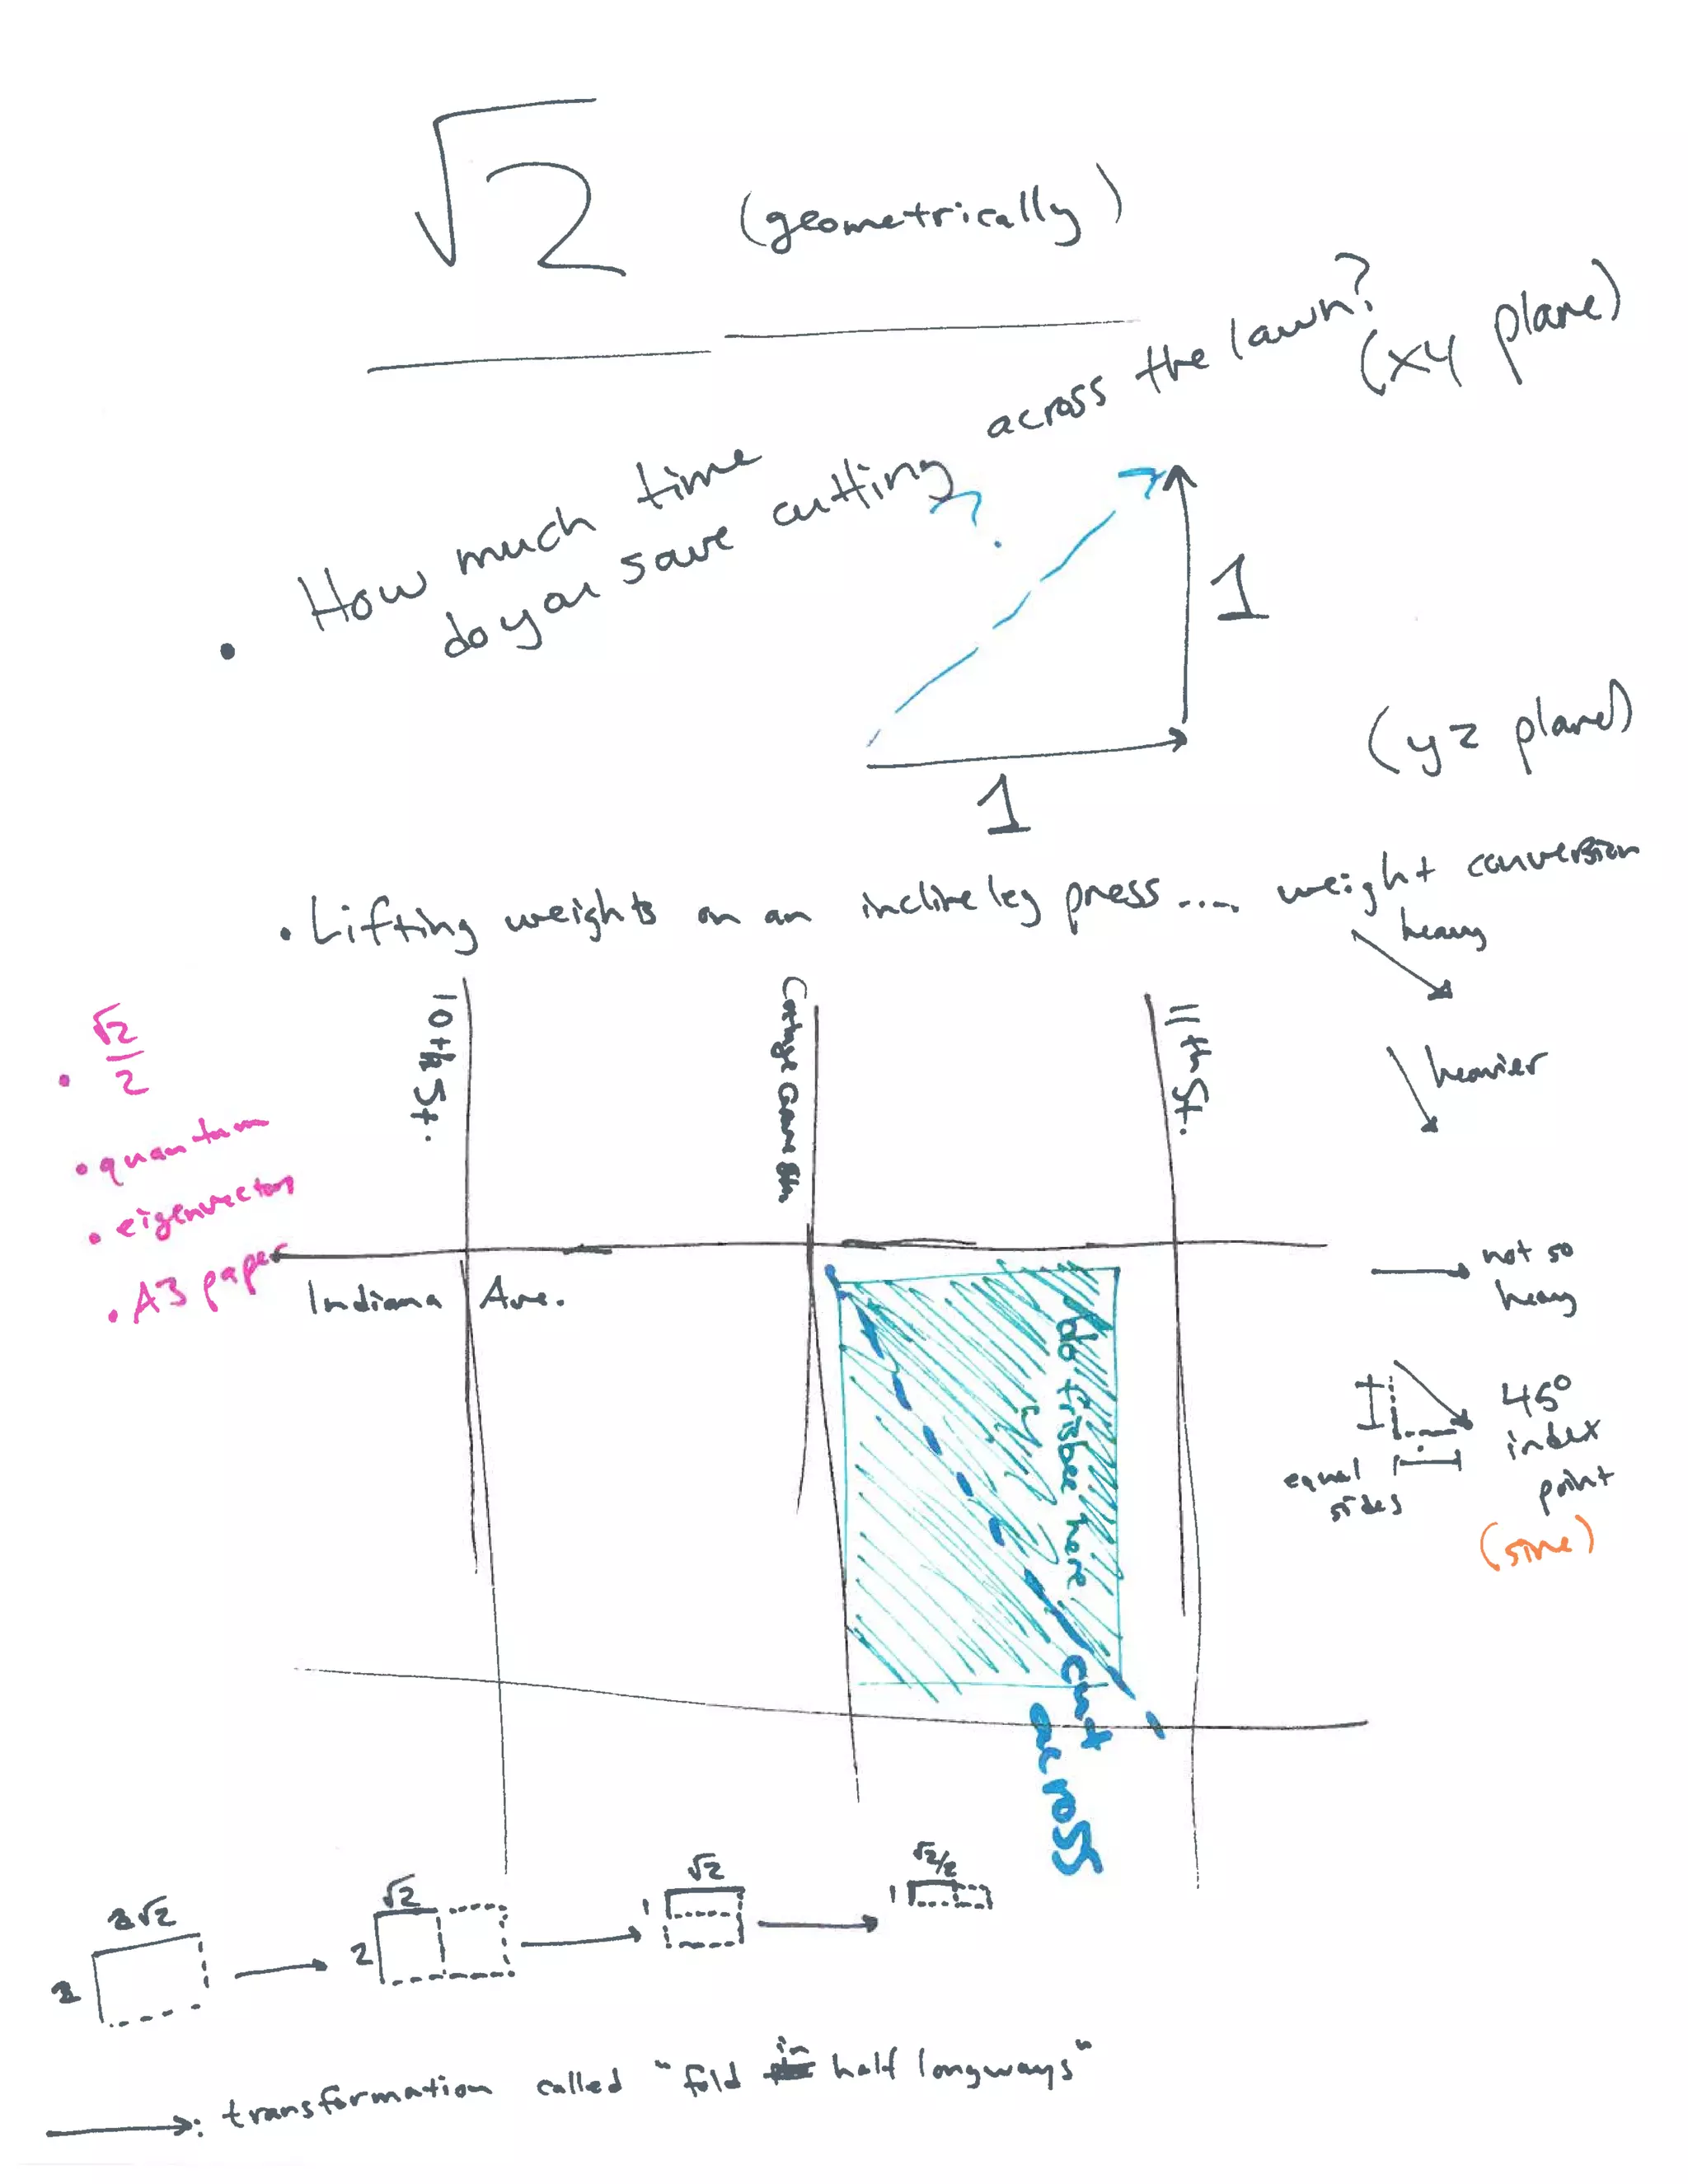 √2 (geometrically)
• How much time
do you save cutting
across the lawn?
(xy plane)
?
1
1
(yz plane)
• Lifting weights on an incline leg press.... weight conversion
heavy
heavier
not so
heavy
45°
index
point
(sine)
equal
sides
• √2/2
• quantum
• eigenvector
• A3 paper
10th St.
11th St.
Indiana Ave.
No frisbee here
Cut
across
2√2
2
√2
2
√2
1
√2/2
1
→: transformation called "fold in half longways"